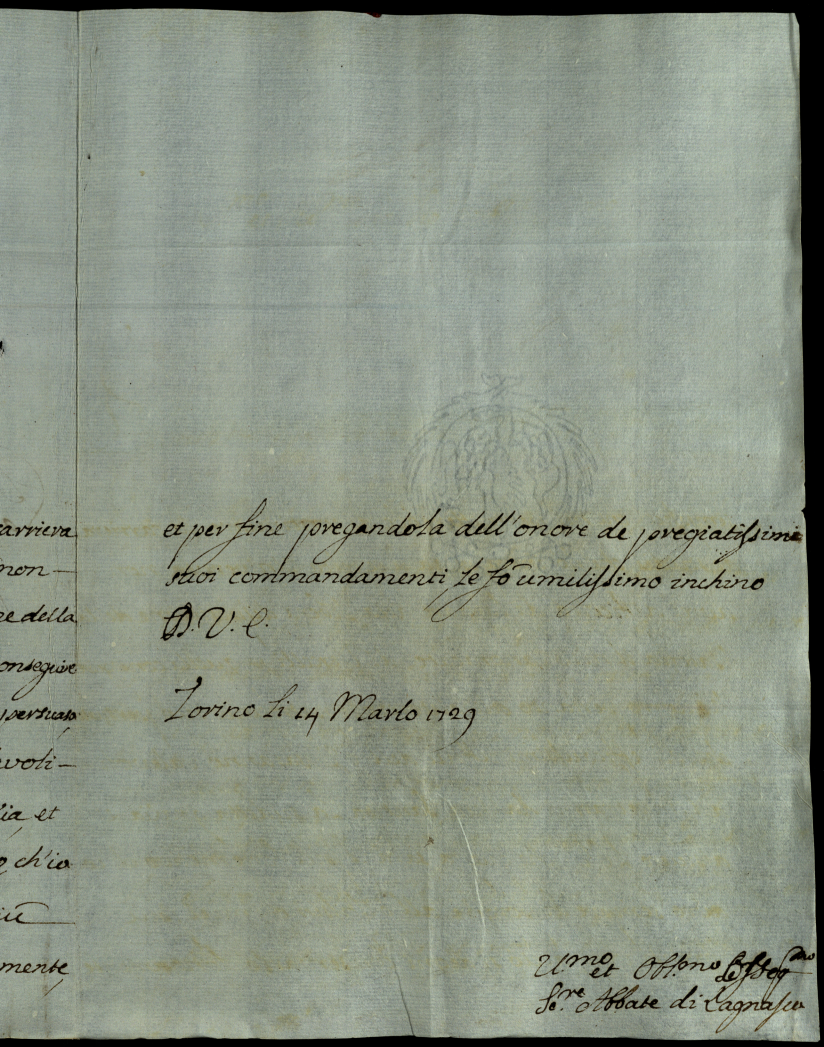 arriera
non-
re della
onseguire
persuaso,
evoli-
lia et
ch'io
mente,
et per fine pregandola dell'onore de pregiatissimi
suoi commandamenti, le fo umilissimo inchino
D. V. E.
Torino li 14 Marzo 1729
Umo et Obl.mo
Se.re Abbate di Lagnasco